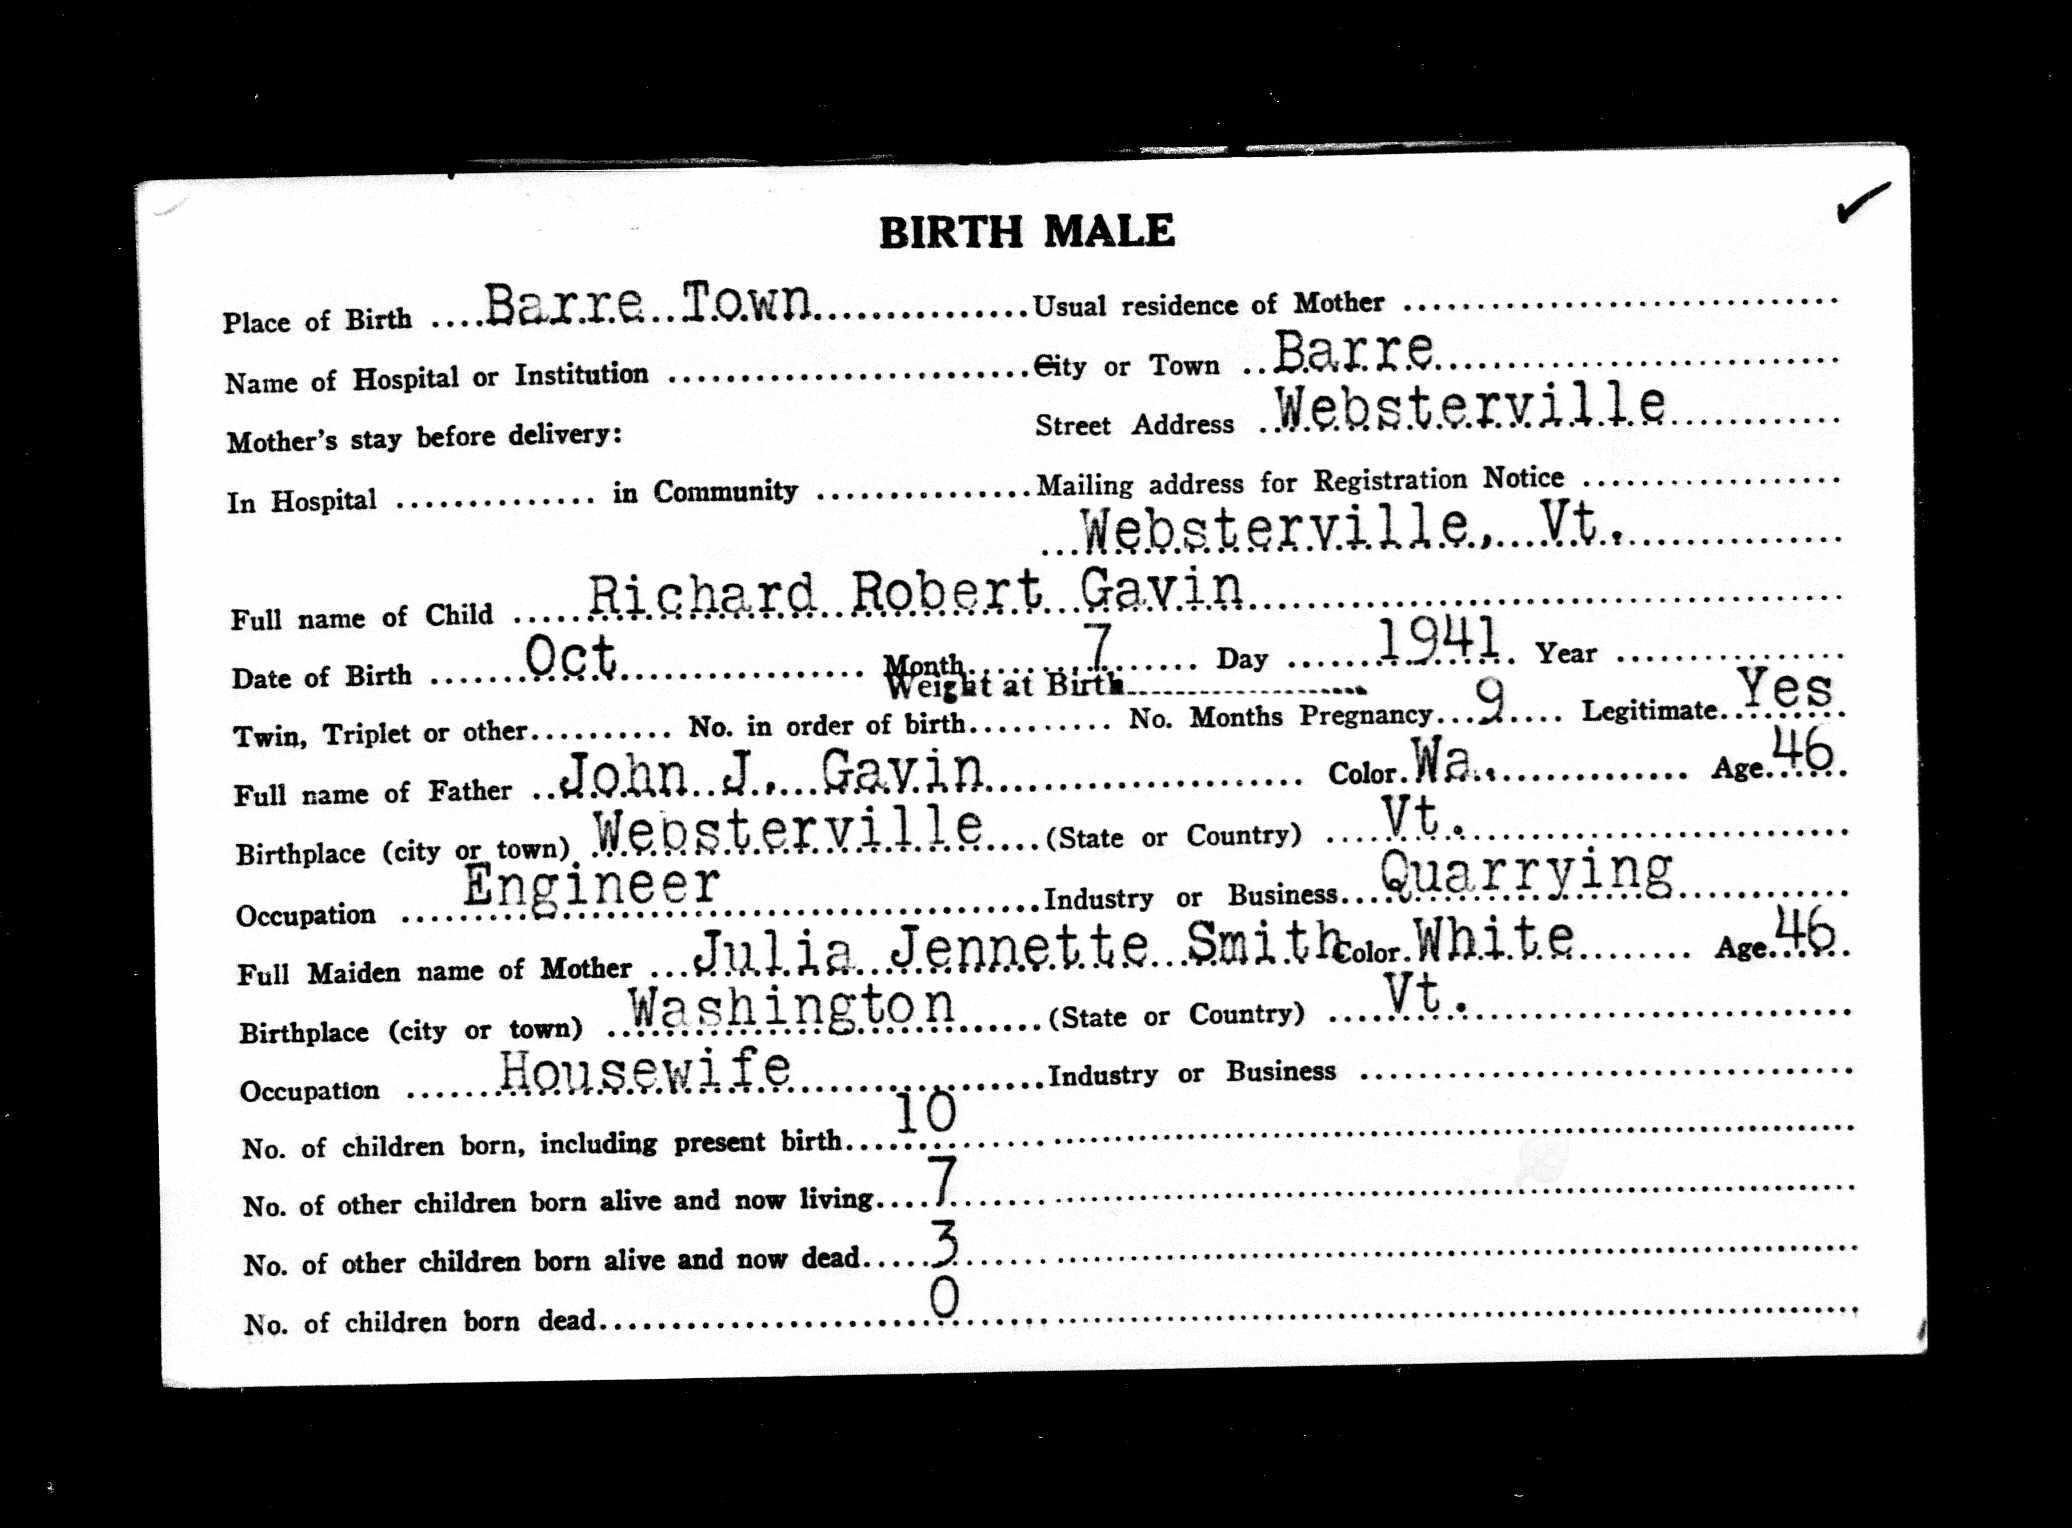 BIRTH MALE
Place of Birth ....Barre Town................Usual residence of Mother ..............................
Name of Hospital or Institution .........................City or Town ..Barre............................
Mother's stay before delivery: Street Address ..Websterville............
In Hospital .............. in Community ...............Mailing address for Registration Notice ..................
...Websterville, Vt................
Full name of Child .....Richard Robert Gavin..........................................
Date of Birth .......Oct................. Month........7....... Day .......1941. Year ................
Weight at Birth....................
Twin, Triplet or other.......... No. in order of birth.......... No. Months Pregnancy...9.... Legitimate..Yes
Full name of Father ..John J. Gavin...................... Color.Wa............... Age.46.
Birthplace (city or town) .Websterville....(State or Country) ....Vt...........................
Occupation ....Engineer......................Industry or Business...Quarrying............
Full Maiden name of Mother ...Julia Jennette Smith Color.White........ Age.46.
Birthplace (city or town) ..Washington......(State or Country) ....Vt...........................
Occupation ......Housewife.................Industry or Business ..................................
No. of children born, including present birth....10..............................................................
No. of other children born alive and now living....7..............................................................
No. of other children born alive and now dead.....3..............................................................
No. of children born dead.......................0..............................................................